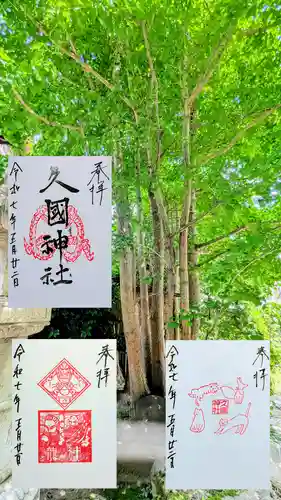 奉拝
久國神社
令和七年五月廿二日
奉拝
令和七年五月廿二日
奉拝
令和七年五月廿二日